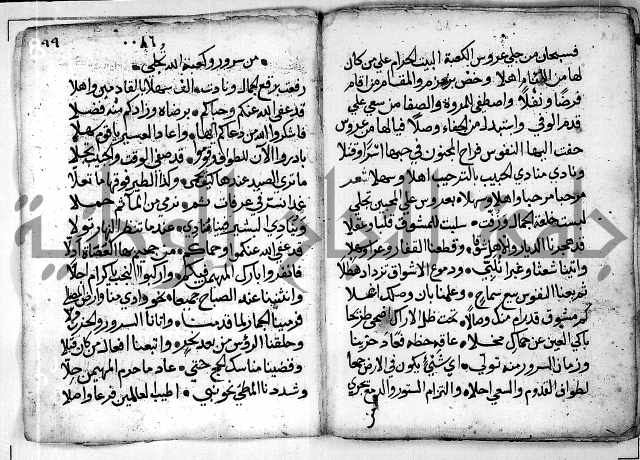 فسبحان من جلي عروس الكعبة البيت الحرام على من كان
لها من اهلا وخص بزمزم والمقام من اقام
فرضا ونفلا واصطفى المروة والصفا من سعى على
قدم الوفى واستبدله من الجفاء وصلا فيالها من عروس
حنت اليها النفوس فراح المجنون فى حبها اسرا وقتلا
ونادى منادى الحبيب بالترحيب اهلا وسهلا شعر
مرحبا مرحبا واهلا وسهلا بعروس على المحبين تجلى
لبست خلعة الجمال وزفت سلبت للمشوق قلبا وعقلا
قد هجرنا الديار والاهل شوقا وقطعنا القفار وعرا وسهلا
واتينا شعثا وغبرا نلبي ودموع الاشواق تزداد هطلا
ثم بعنا النفوس بيع سماح وعلمنا بان وصلك اغلا
كم مشوق قد رام منك وصالا تحت ظل الاراك اضحى طريحا
باكي العين عن جمالك مخلا عاقه حظه فعاد حزينا
وزمان السرور منه تولى اي شيء يكون فى الارض
لطواف القدوم والسعي احلا والتزام الستور والدمع يجري
٩٩
٨٦
من سرور وكعبة الله تجلى
رفعت برقع الجمال ونادت الف سهلا بالقادمين واهلا
قد عفى الله عنكم وحباكم برضاه وزادكم منه فضلا
فاشكروا الله من دعاكم اليها واعاد العسير يا قوم سهلا
بادروا الآن للطواف وقوموا قد صفى الوقت والحبيب تجلا
ما ترى الصيد عندها وكذا الطير فوقها ما تعلا
غدا نسترقى عرفات نرمي من المآثم حملا
وينادي البشير فينا عندما ننظر النهار تولا
قد عفى الله عنكم وحماكم من جميع العصاة
فانفروا بارك المهيمن فيكم واركبوا النجب يا كرام احلا
وانثنينا عند الصباح جميعا نحو وادي منا وارض المصلا
فرمينا الجمار لما قدمنا واتانا السرور والحزن ولا
وحلقنا الرؤس من بعد نحر واتبعنا افعال من كان قبلا
وقضينا مناسك الحج حتى عاد ما حرم المهيمن حلا
وشددنا المطي نحو نبي اطيب العالمين فرعا واصلا
جامعة الرياض